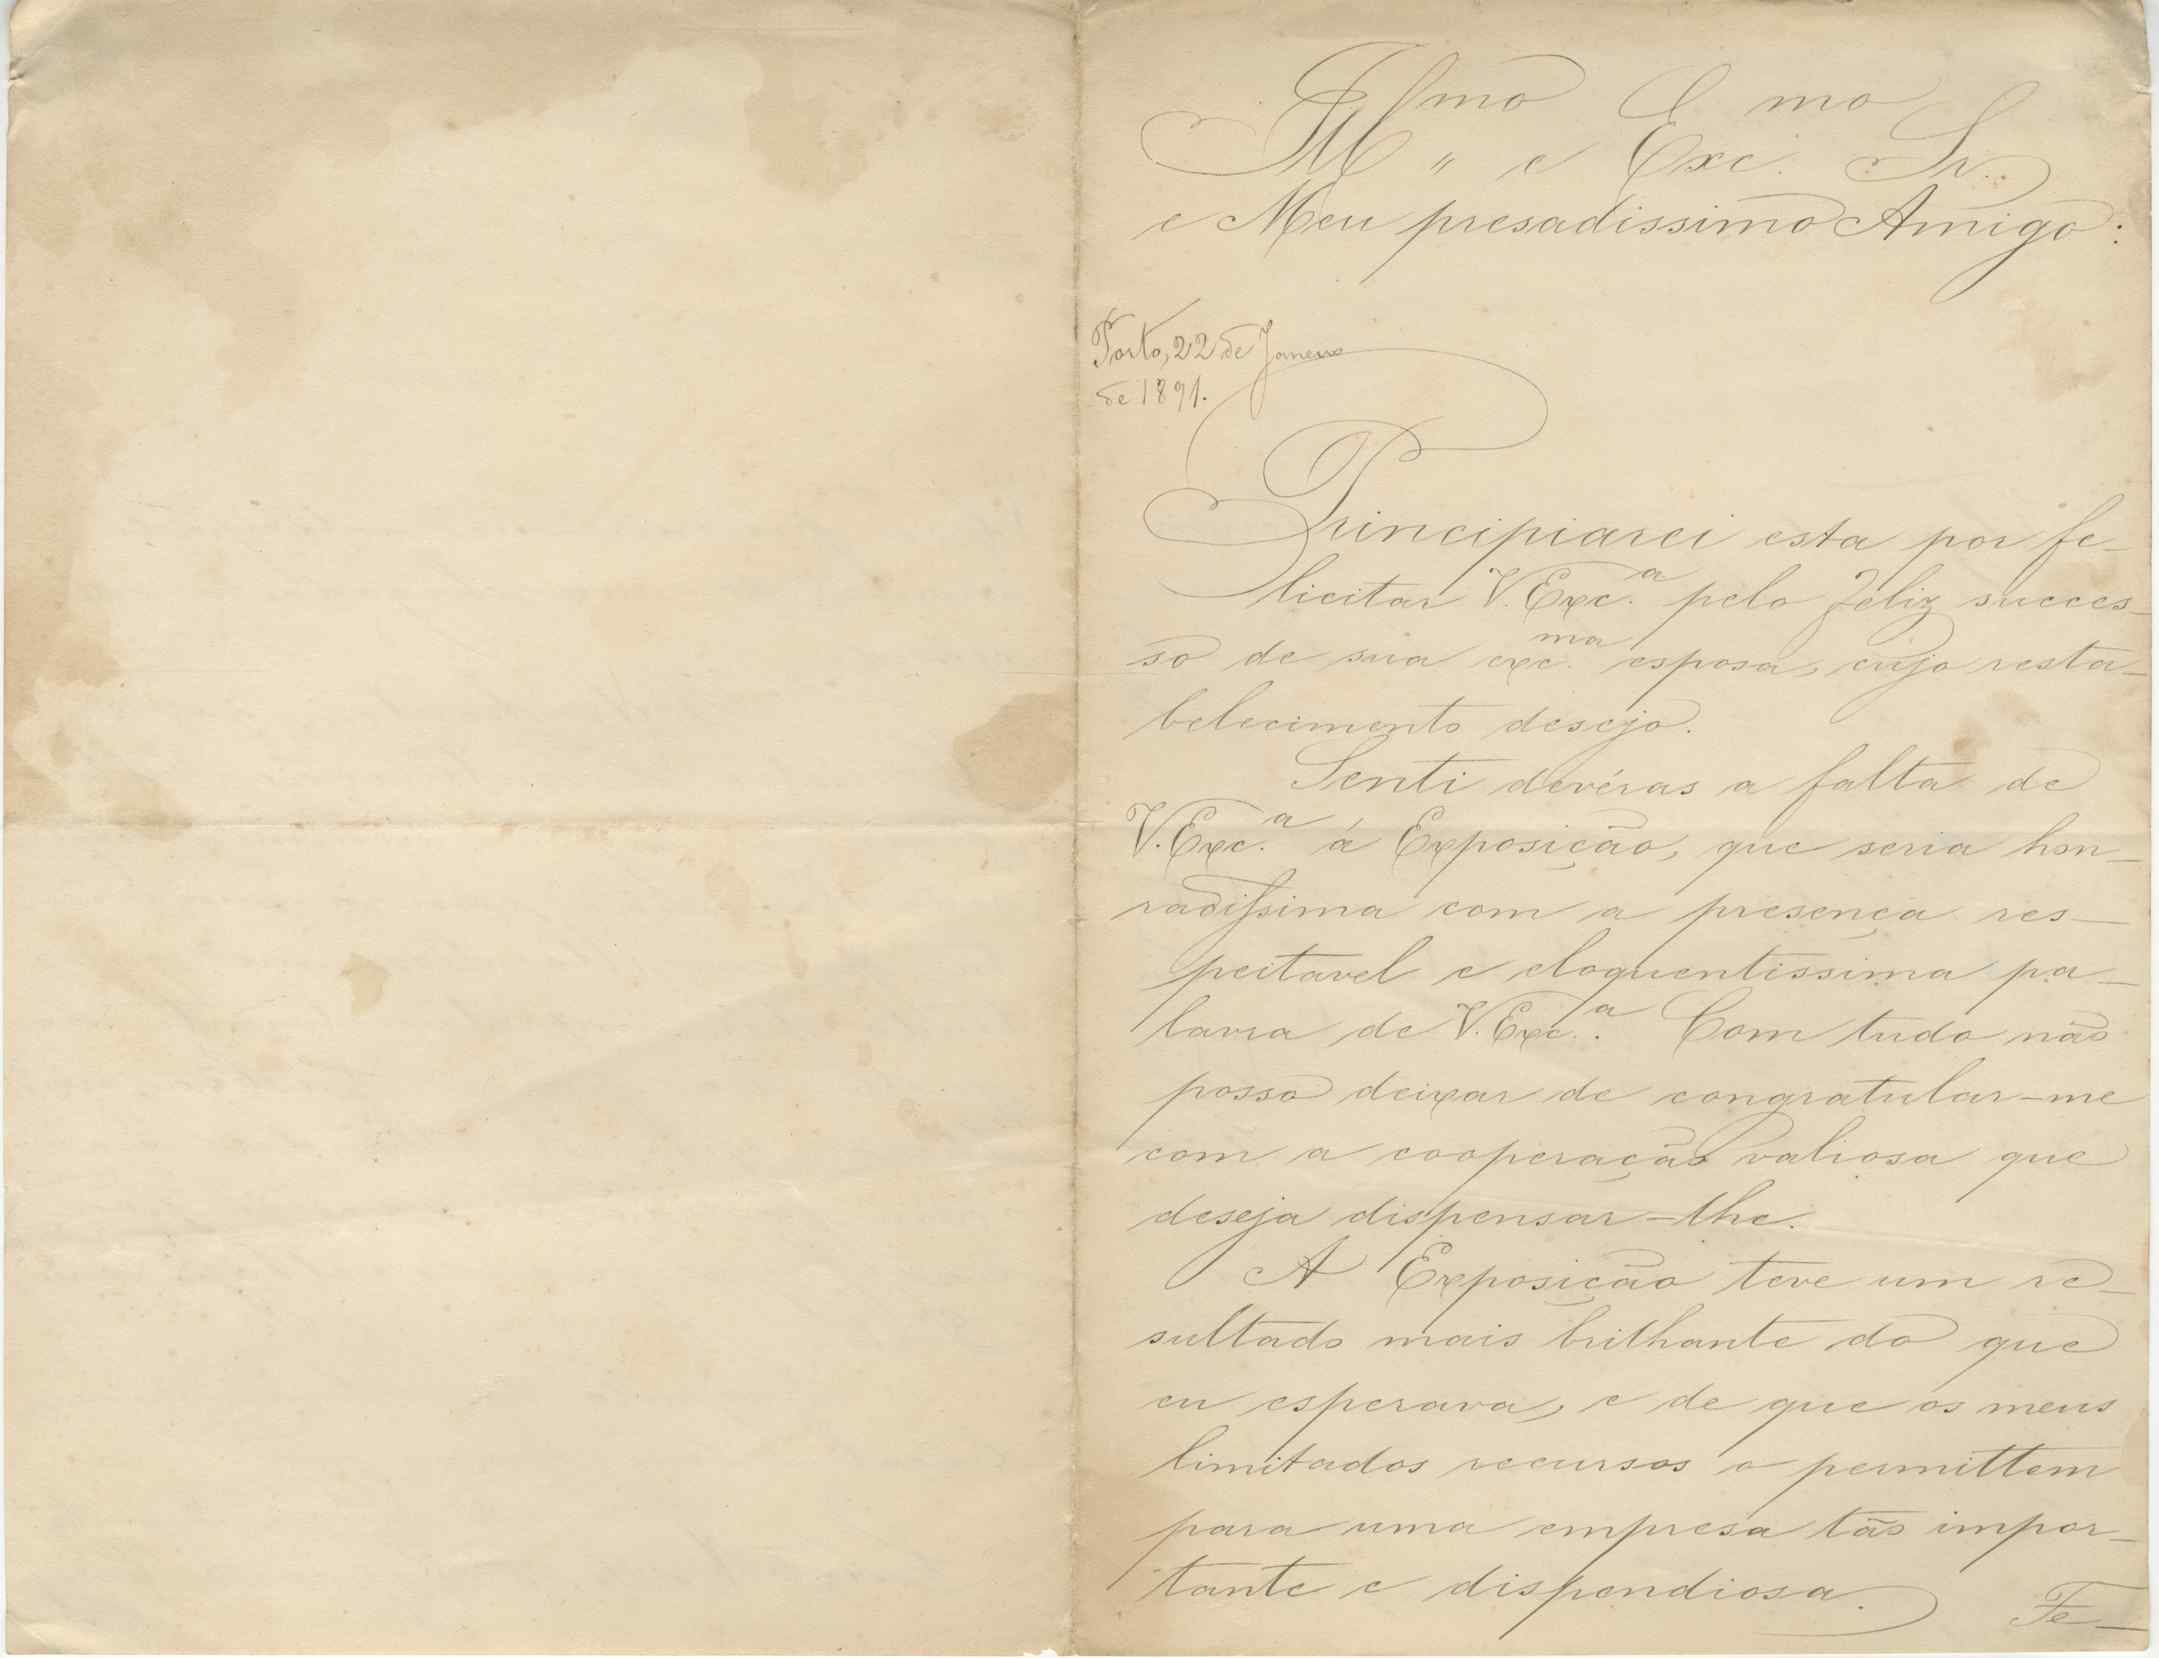 Ill.mo e Exc.mo Sr.
e Meu presadissimo Amigo:
Porto, 22 de Janeiro
de 1891.
Principiarei esta por fe-
licitar V. Exc.a pelo feliz succes-
so de sua exc.ma esposa, cujo resta-
belecimento desejo.
Senti devéras a falta de
V. Exc.a á Exposição, que seria hon-
radissima com a presença res-
peitavel e eloquentissima pa-
lavra de V. Exc.a. Com tudo não
posso deixar de congratular-me
com a cooperação valiosa que
deseja dispensar-lhe.
A Exposição teve um re-
sultado mais brilhante do que
eu esperava, e de que os meus
limitados recursos o permittem
para uma empresa tão impor-
tante e dispendiosa.
Fe-